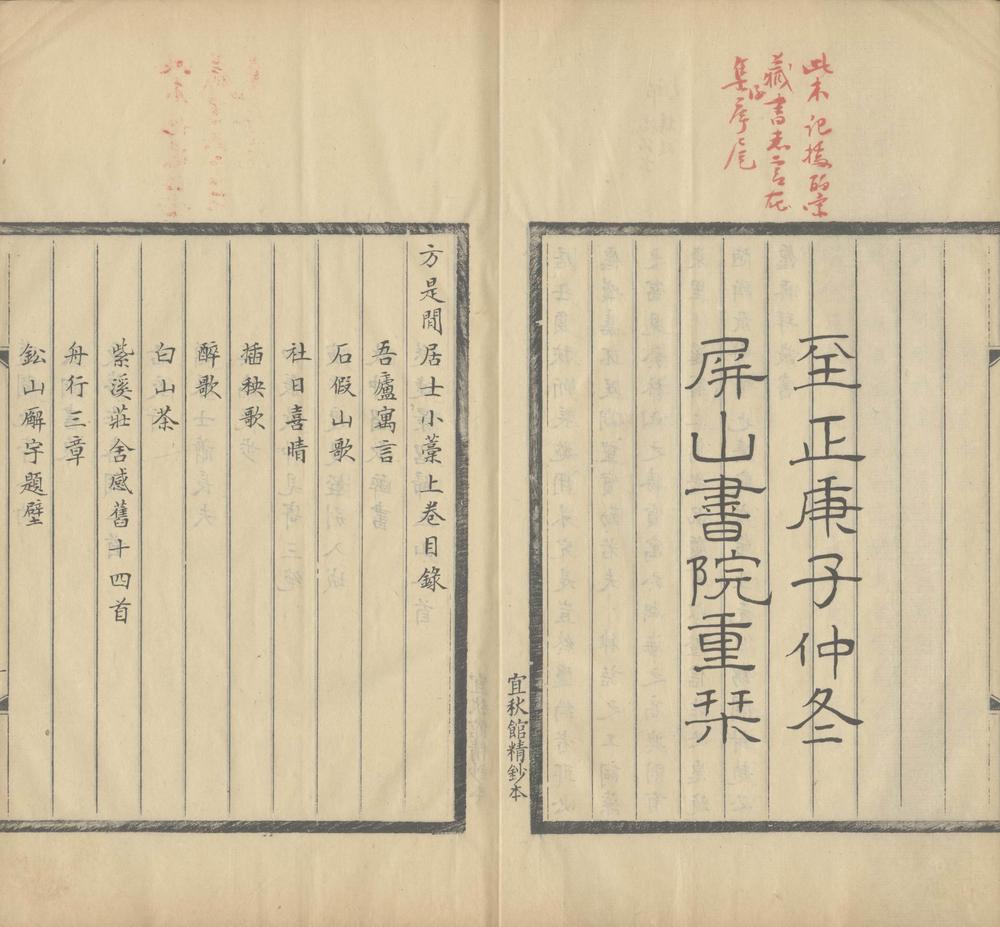 此本記據丽宋
藏書志言在
集序尾
至正庚子仲冬
屏山書院重栞
宜秋館精鈔本
方是閒居士小藁上卷目錄
吾廬寓言
石假山歌
社日喜晴
插秧歌
醉歌
白山茶
紫溪莊舍感舊十四首
舟行三章
鈆山廨宇題壁